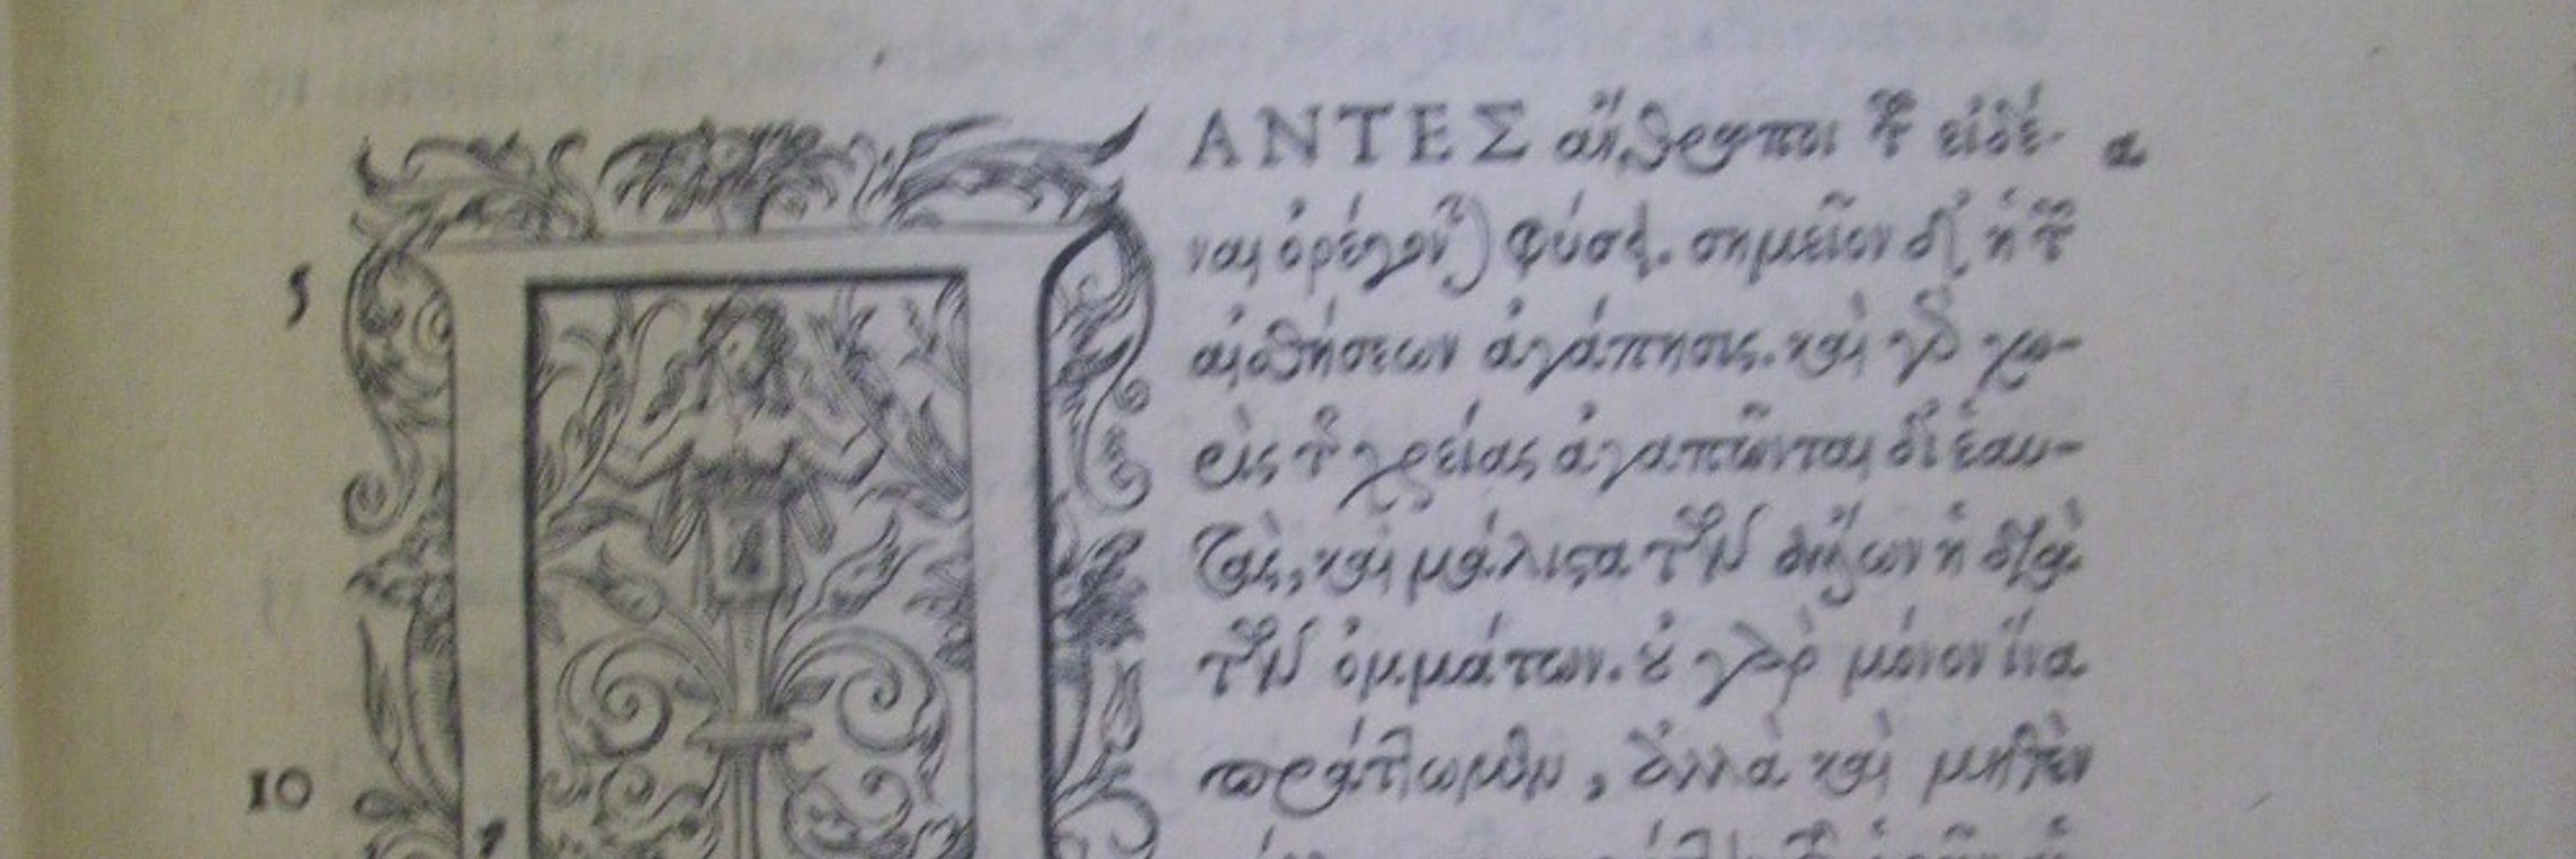 ΠΑΝΤΕΣ ἄνθρωποι τοῦ εἰδέ- α
5 ναι ὀρέγονται φύσει. σημεῖον δ' ἡ τῶν
αἰσθήσεων ἀγάπησις. καὶ γὰρ χω-
ρὶς τῆς χρείας ἀγαπῶνται δι' ἑαυ-
τὰς, καὶ μάλιστα τῶν ἄλλων ἡ διὰ
τῶν ὀμμάτων. οὐ γὰρ μόνον ἵνα
10 πράττωμεν, ἀλλὰ καὶ μηδὲν